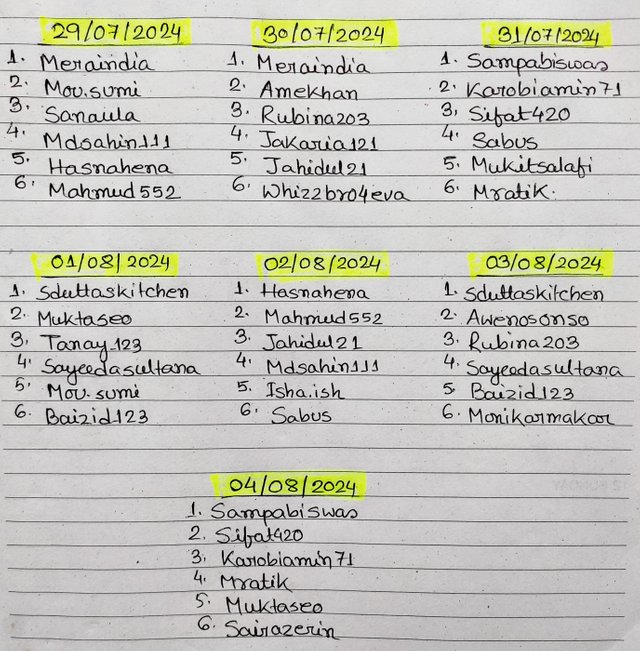 29/07/2024
1. Meraindia
2. Mou.sumi
3. Sanaula
4. Mdsahin111
5. Hasnahena
6. Mahmud552
30/07/2024
1. Meraindia
2. Amekhan
3. Rubina203
4. Jakaria121
5. Jahidul21
6. Whizzbro4eva
31/07/2024
1. Sampabiswas
2. Karobiamin71
3. Sifat420
4. Sabus
5. Mukitsalafi
6. Mratik.
01/08/2024
1. Sduttaskitchen
2. Muktaseo
3. Tanay123
4. Sayeedasultana
5. Mou.sumi
6. Baizid123
02/08/2024
1. Hasnahena
2. Mahmud552
3. Jahidul21
4. Mdsahin111
5. Isha.ish
6. Sabus
03/08/2024
1. Sduttaskitchen
2. Awenosonso
3. Rubina203
4. Sayeedasultana
5. Baizid123
6. Monikarmakar
04/08/2024
1. Sampabiswas
2. Sifat420
3. Karobiamin71
4. Mratik
5. Muktaseo
6. Sairazerin